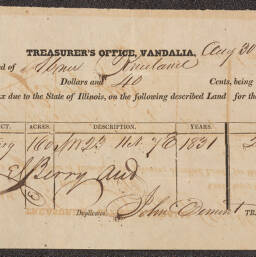 TREASURER'S OFFICE, VANDALIA, Aug 30
d of Abner Vreeland
Dollars and 40 Cents, being
x due to the State of Illinois, on the following described Land for th
CT. ACRES. DESCRIPTION. YEARS.
160 N W 23 11 N 7 E 1831
E Berry Aud
Duplicate. John Dement TR